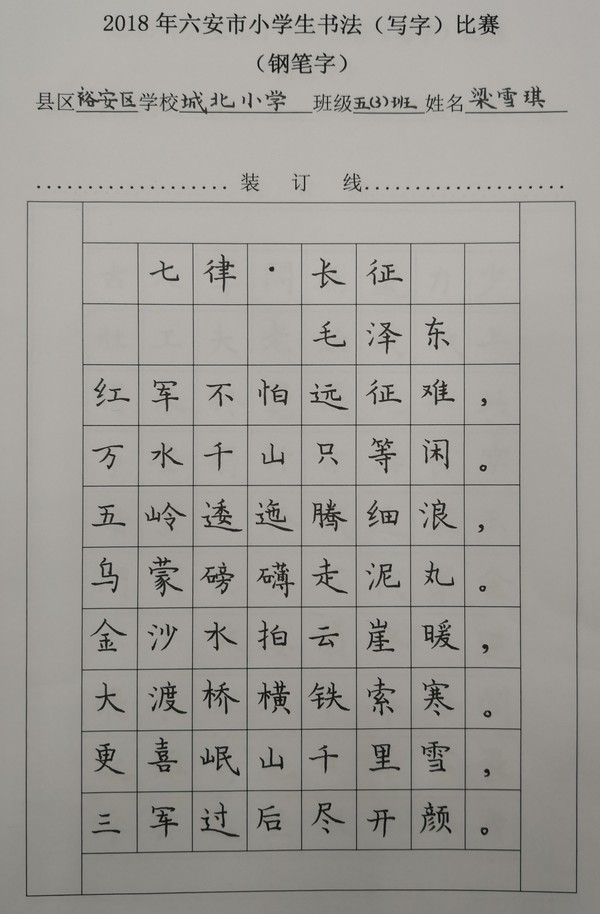 2018年六安市小学生书法（写字）比赛
（钢笔字）
县区裕安区学校城北小学 班级五(3)班 姓名梁雪琪
................... 装 订 线....................
七律·长征
毛泽东
红军不怕远征难，
万水千山只等闲。
五岭逶迤腾细浪，
乌蒙磅礴走泥丸。
金沙水拍云崖暖，
大渡桥横铁索寒。
更喜岷山千里雪，
三军过后尽开颜。